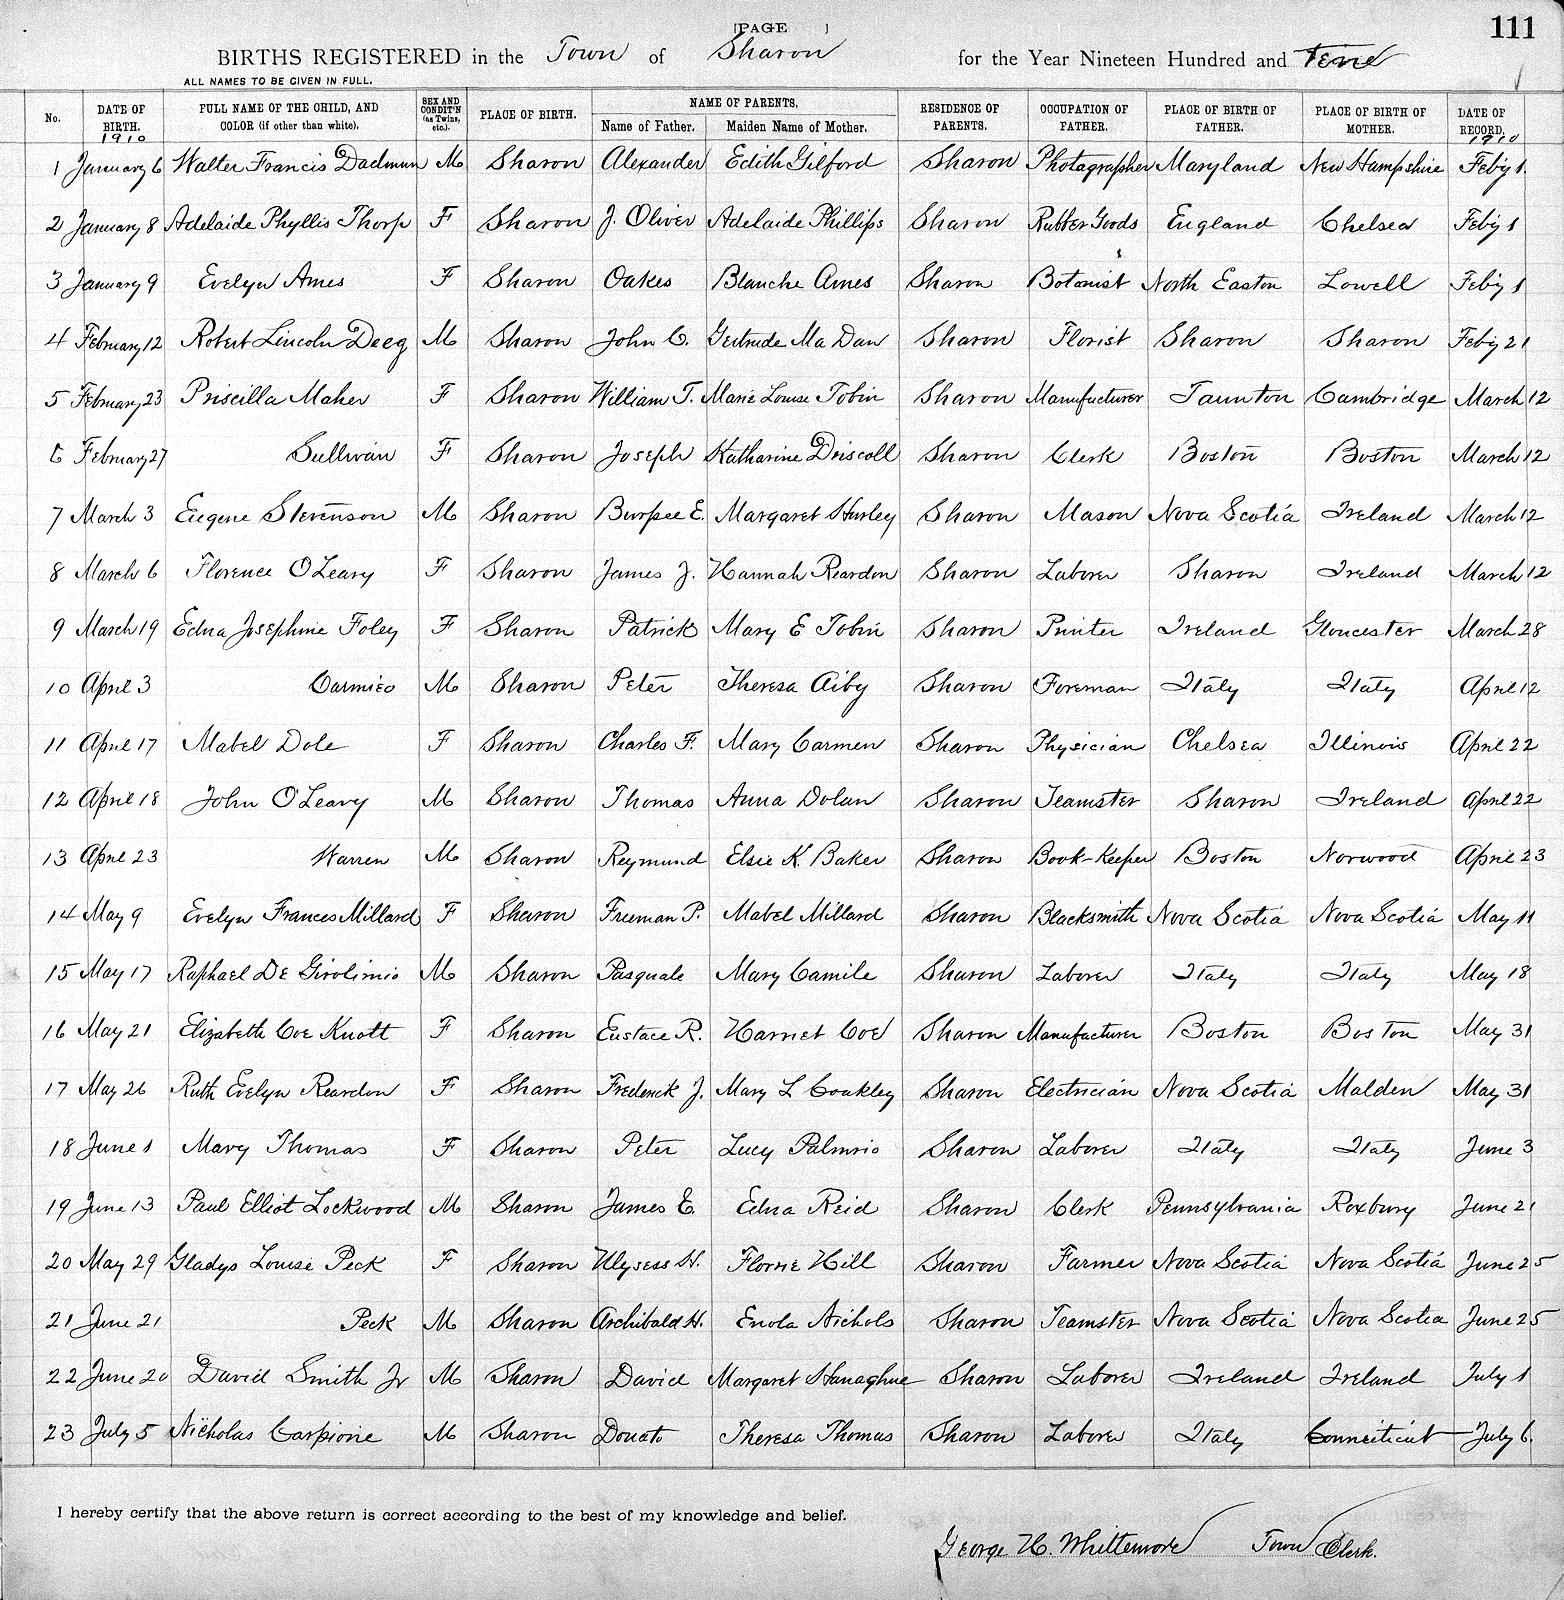 [PAGE ] 111
BIRTHS REGISTERED in the Town of Sharon for the Year Nineteen Hundred and Ten
ALL NAMES TO BE GIVEN IN FULL.
No. DATE OF BIRTH. 1910 FULL NAME OF THE CHILD, AND COLOR (if other than white). SEX AND CONDIT'N (as Twins, etc.). PLACE OF BIRTH. NAME OF PARENTS. Name of Father. Maiden Name of Mother. RESIDENCE OF PARENTS. OCCUPATION OF FATHER. PLACE OF BIRTH OF FATHER. PLACE OF BIRTH OF MOTHER. DATE OF RECORD. 1910
1 January 6 Walter Francis Dadmun M Sharon Alexander Edith Gilford Sharon Photagrapher Maryland New Hampshire Feb'y 1.
2 January 8 Adelaide Phyllis Thorp F Sharon J. Oliver Adelaide Phillips Sharon Rubber Goods England Chelsea Feb'y 1
3 January 9 Evelyn Ames F Sharon Oakes Blanche Ames Sharon Botanist North Easton Lowell Feb'y 1
4 February 12 Robert Lincoln Deeg M Sharon John C. Gertrude Ma Dan Sharon Florist Sharon Sharon Feb'y 21
5 February 23 Priscilla Maher F Sharon William T. Marie Louise Tobin Sharon Manufacturer Taunton Cambridge March 12
6 February 27 Sullivan F Sharon Joseph Katharine Driscoll Sharon Clerk Boston Boston March 12
7 March 3 Eugene Stevenson M Sharon Burpee E. Margaret Hurley Sharon Mason Nova Scotia Ireland March 12
8 March 6 Florence O'Leary F Sharon James J. Hannah Reardon Sharon Laborer Sharon Ireland March 12
9 March 19 Edna Josephine Foley F Sharon Patrick Mary E Tobin Sharon Printer Ireland Gloucester March 28
10 April 3 Carmico M Sharon Peter Theresa Aiby Sharon Foreman Italy Italy April 12
11 April 17 Mabel Dole F Sharon Charles F. Mary Carmen Sharon Physician Chelsea Illinois April 22
12 April 18 John O'Leary M Sharon Thomas Anna Dolan Sharon Teamster Sharon Ireland April 22
13 April 23 Warren M Sharon Reymund Elsie K. Baker Sharon Book-Keeper Boston Norwood April 23
14 May 9 Evelyn Frances Millard F Sharon Freeman P. Mabel Millard Sharon Blacksmith Nova Scotia Nova Scotia May 11
15 May 17 Raphael De Girolimio M Sharon Pasquale Mary Camile Sharon Laborer Italy Italy May 18
16 May 21 Elizabeth Coe Knott F Sharon Eustace R. Harriet Coe Sharon Manufacturer Boston Boston May 31
17 May 26 Ruth Evelyn Reardon F Sharon Frederick J. Mary L Coakley Sharon Electrician Nova Scotia Malden May 31
18 June 1 Mary Thomas F Sharon Peter Lucy Palmrio Sharon Laborer Italy Italy June 3
19 June 13 Paul Elliot Lockwood M Sharon James E. Edna Reid Sharon Clerk Pennsylvania Roxbury June 21
20 May 29 Gladys Louise Peck F Sharon Ulysess H. Florne Hill Sharon Farmer Nova Scotia Nova Scotia June 25
21 June 21 Peck M Sharon Archibald H. Enola Nichols Sharon Teamster Nova Scotia Nova Scotia June 25
22 June 20 David Smith Jr M Sharon David Margaret Hanaghue Sharon Laborer Ireland Ireland July 1
23 July 5 Nicholas Carpione M Sharon Donato Theresa Thomas Sharon Laborer Italy Connecticut July 6.
I hereby certify that the above return is correct according to the best of my knowledge and belief.
George H. Whittemore Town Clerk.